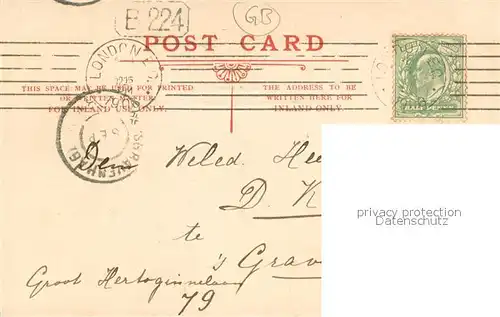 B 224
GB
POST CARD
LONDON
THIS SPACE MAY BE USED FOR PRINTED
OR WRITTEN MATTER
FOR INLAND USE ONLY.
THE ADDRESS TO BE
WRITTEN HERE FOR
INLAND ONLY.
12 15
'S GRAVENHAGE
Den Weled. Hee
D. K
te
's Grav
Groot Hertoginnelaan
79
privacy protection
Datenschutz